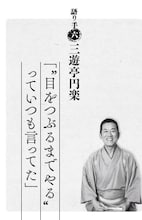 語り手六 三遊亭円楽
「“目をつぶるまでやる”
っていつも言ってた」